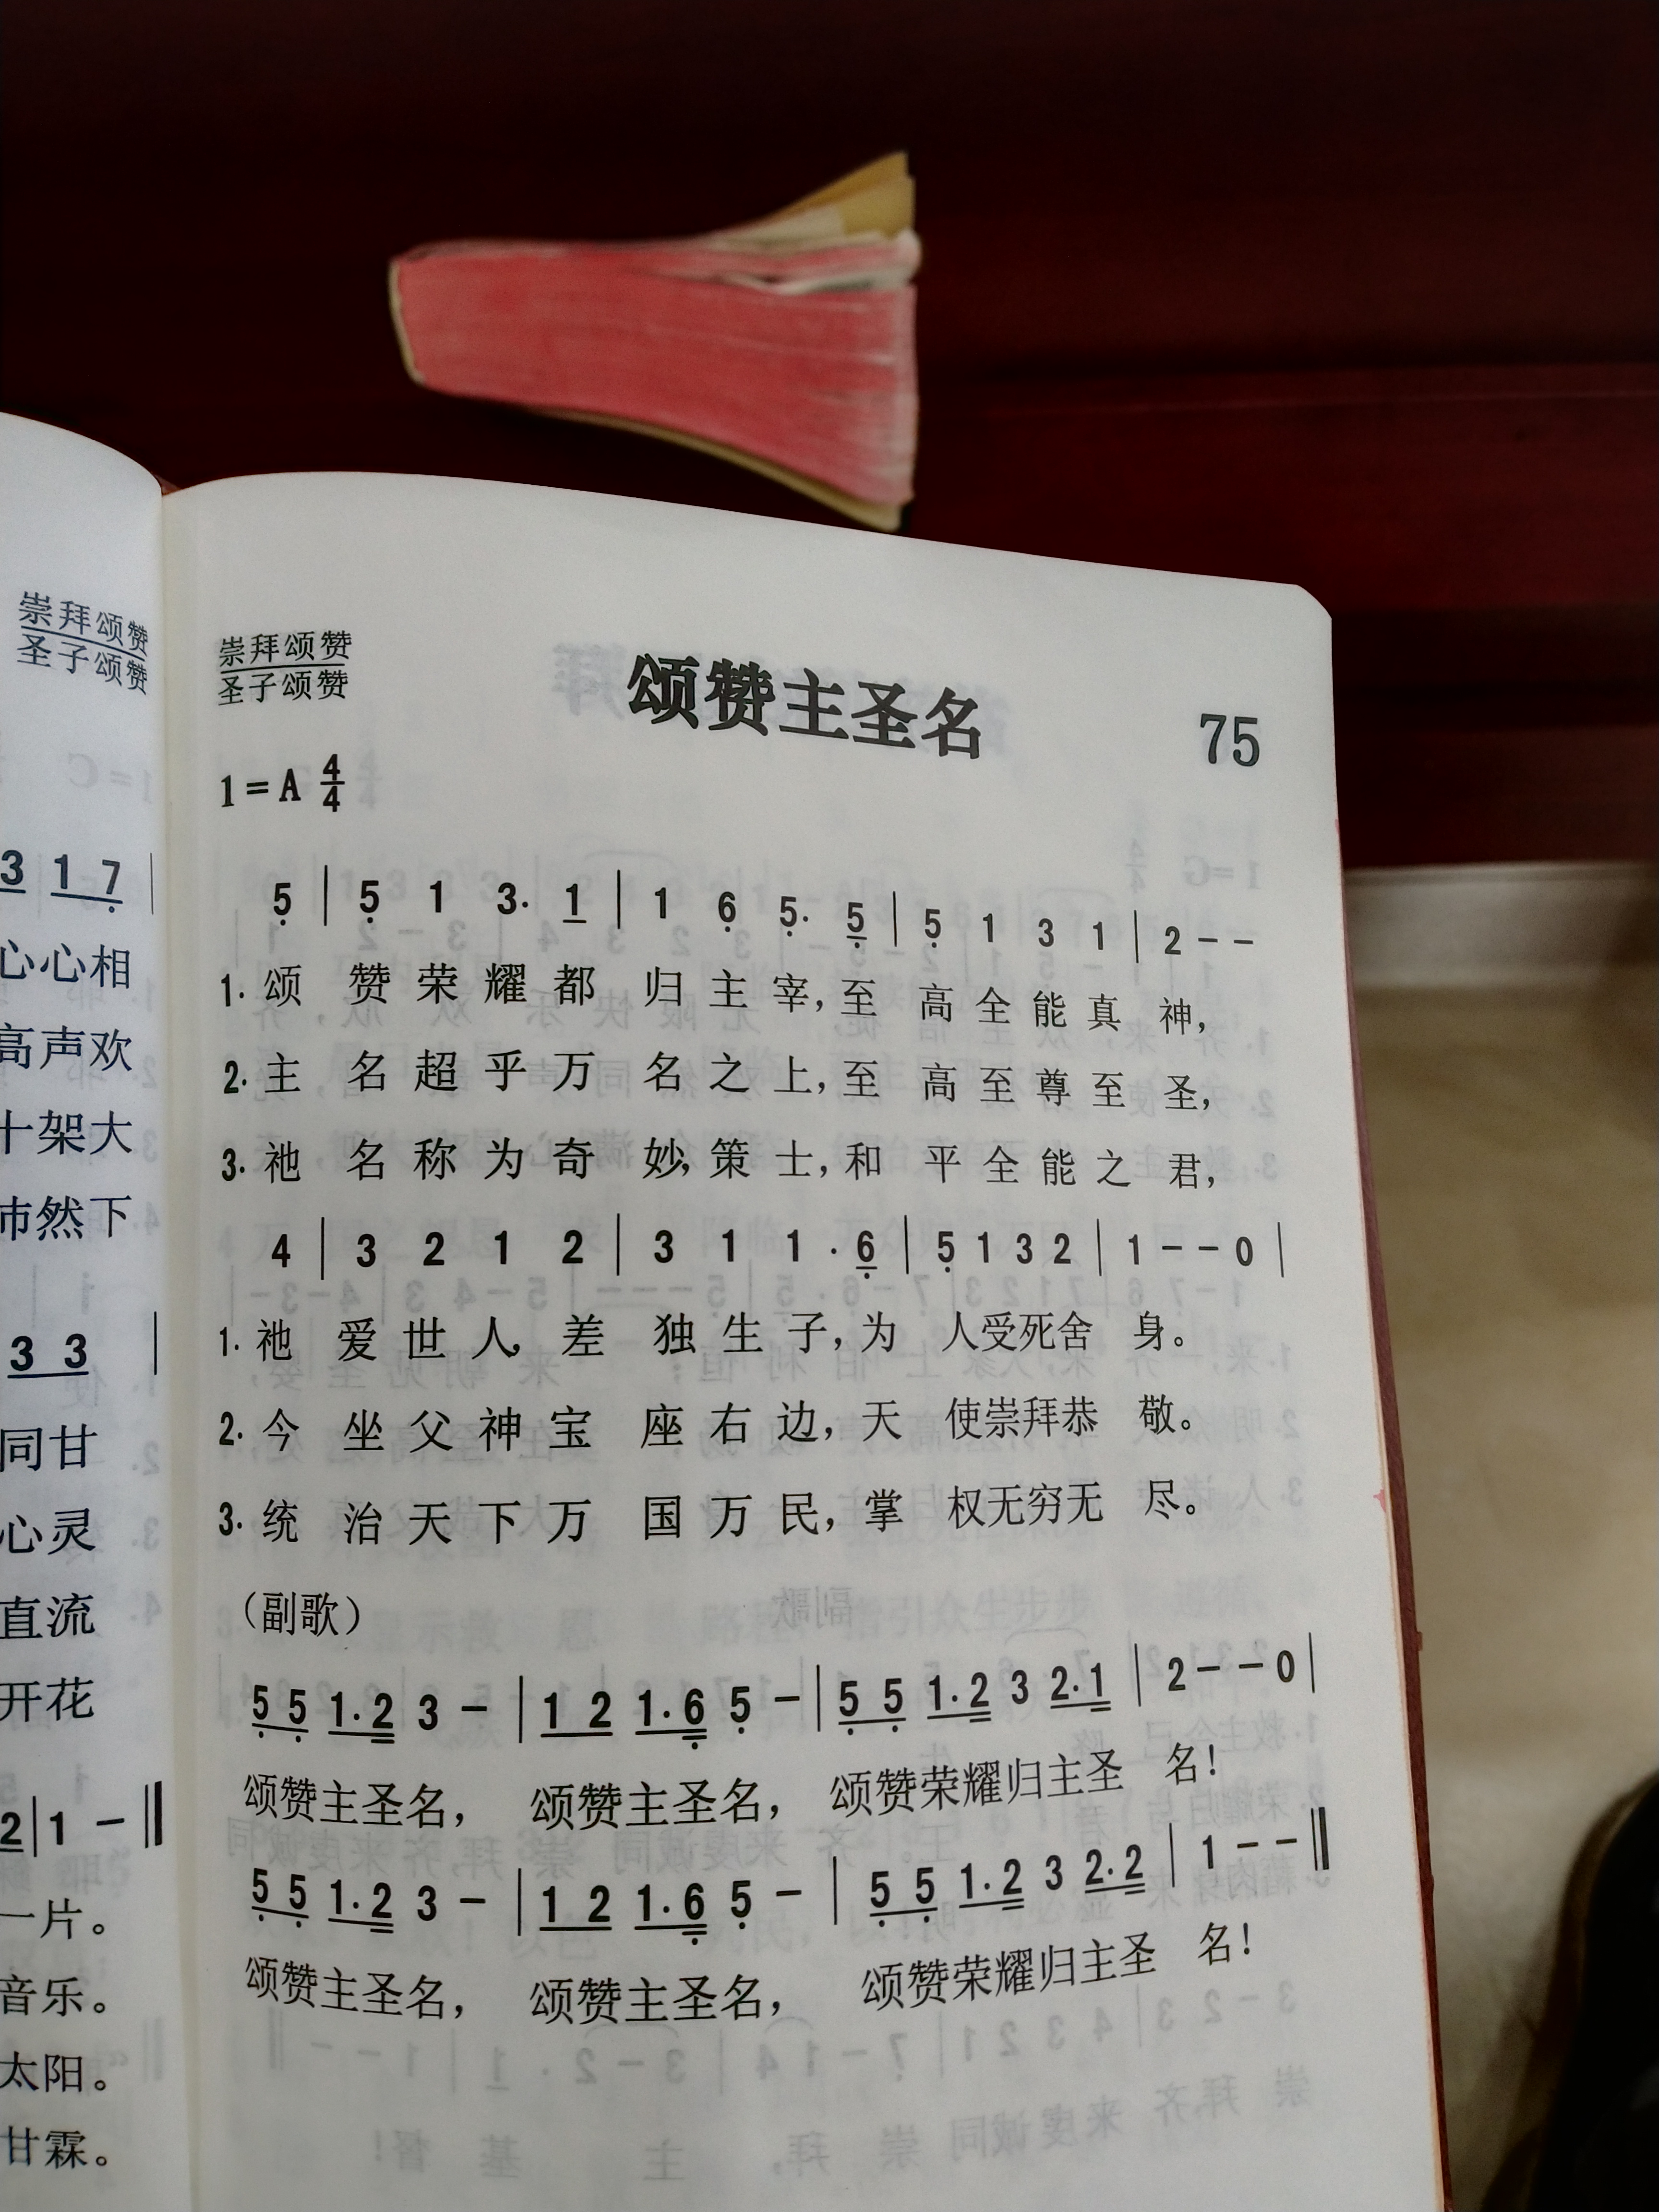 崇拜颂赞
圣子颂赞
3 1 7
心心相
高声欢
十架大
沛然下
3 3
同甘
心灵
直流
开花
2 | 1 – ‖
一片。
音乐。
太阳。
甘霖。
崇拜颂赞
圣子颂赞
颂赞主圣名
75
1 = A 4/4
5 | 5 1 3· 1 | 1 6 5· 5 | 5 1 3 1 | 2 – –
1. 颂 赞 荣 耀 都 归 主 宰, 至 高 全 能 真 神,
2. 主 名 超 乎 万 名 之 上, 至 高 至 尊 至 圣,
3. 祂 名 称 为 奇 妙, 策 士, 和 平 全 能 之 君,
4 | 3 2 1 2 | 3 1 1 · 6 | 5 1 3 2 | 1 – – 0 |
1. 祂 爱 世 人, 差 独 生 子, 为 人受死舍 身。
2. 今 坐 父 神 宝 座 右 边, 天 使崇拜恭 敬。
3. 统 治 天 下 万 国 万 民, 掌 权无穷无 尽。
(副歌)
5 5 1·2 3 – | 1 2 1·6 5 – | 5 5 1·2 3 2·1 | 2 – – 0 |
颂赞主圣名, 颂赞主圣名, 颂赞荣耀归主圣 名!
5 5 1·2 3 – | 1 2 1·6 5 – | 5 5 1·2 3 2·2 | 1 – – ‖
颂赞主圣名, 颂赞主圣名, 颂赞荣耀归主圣 名!